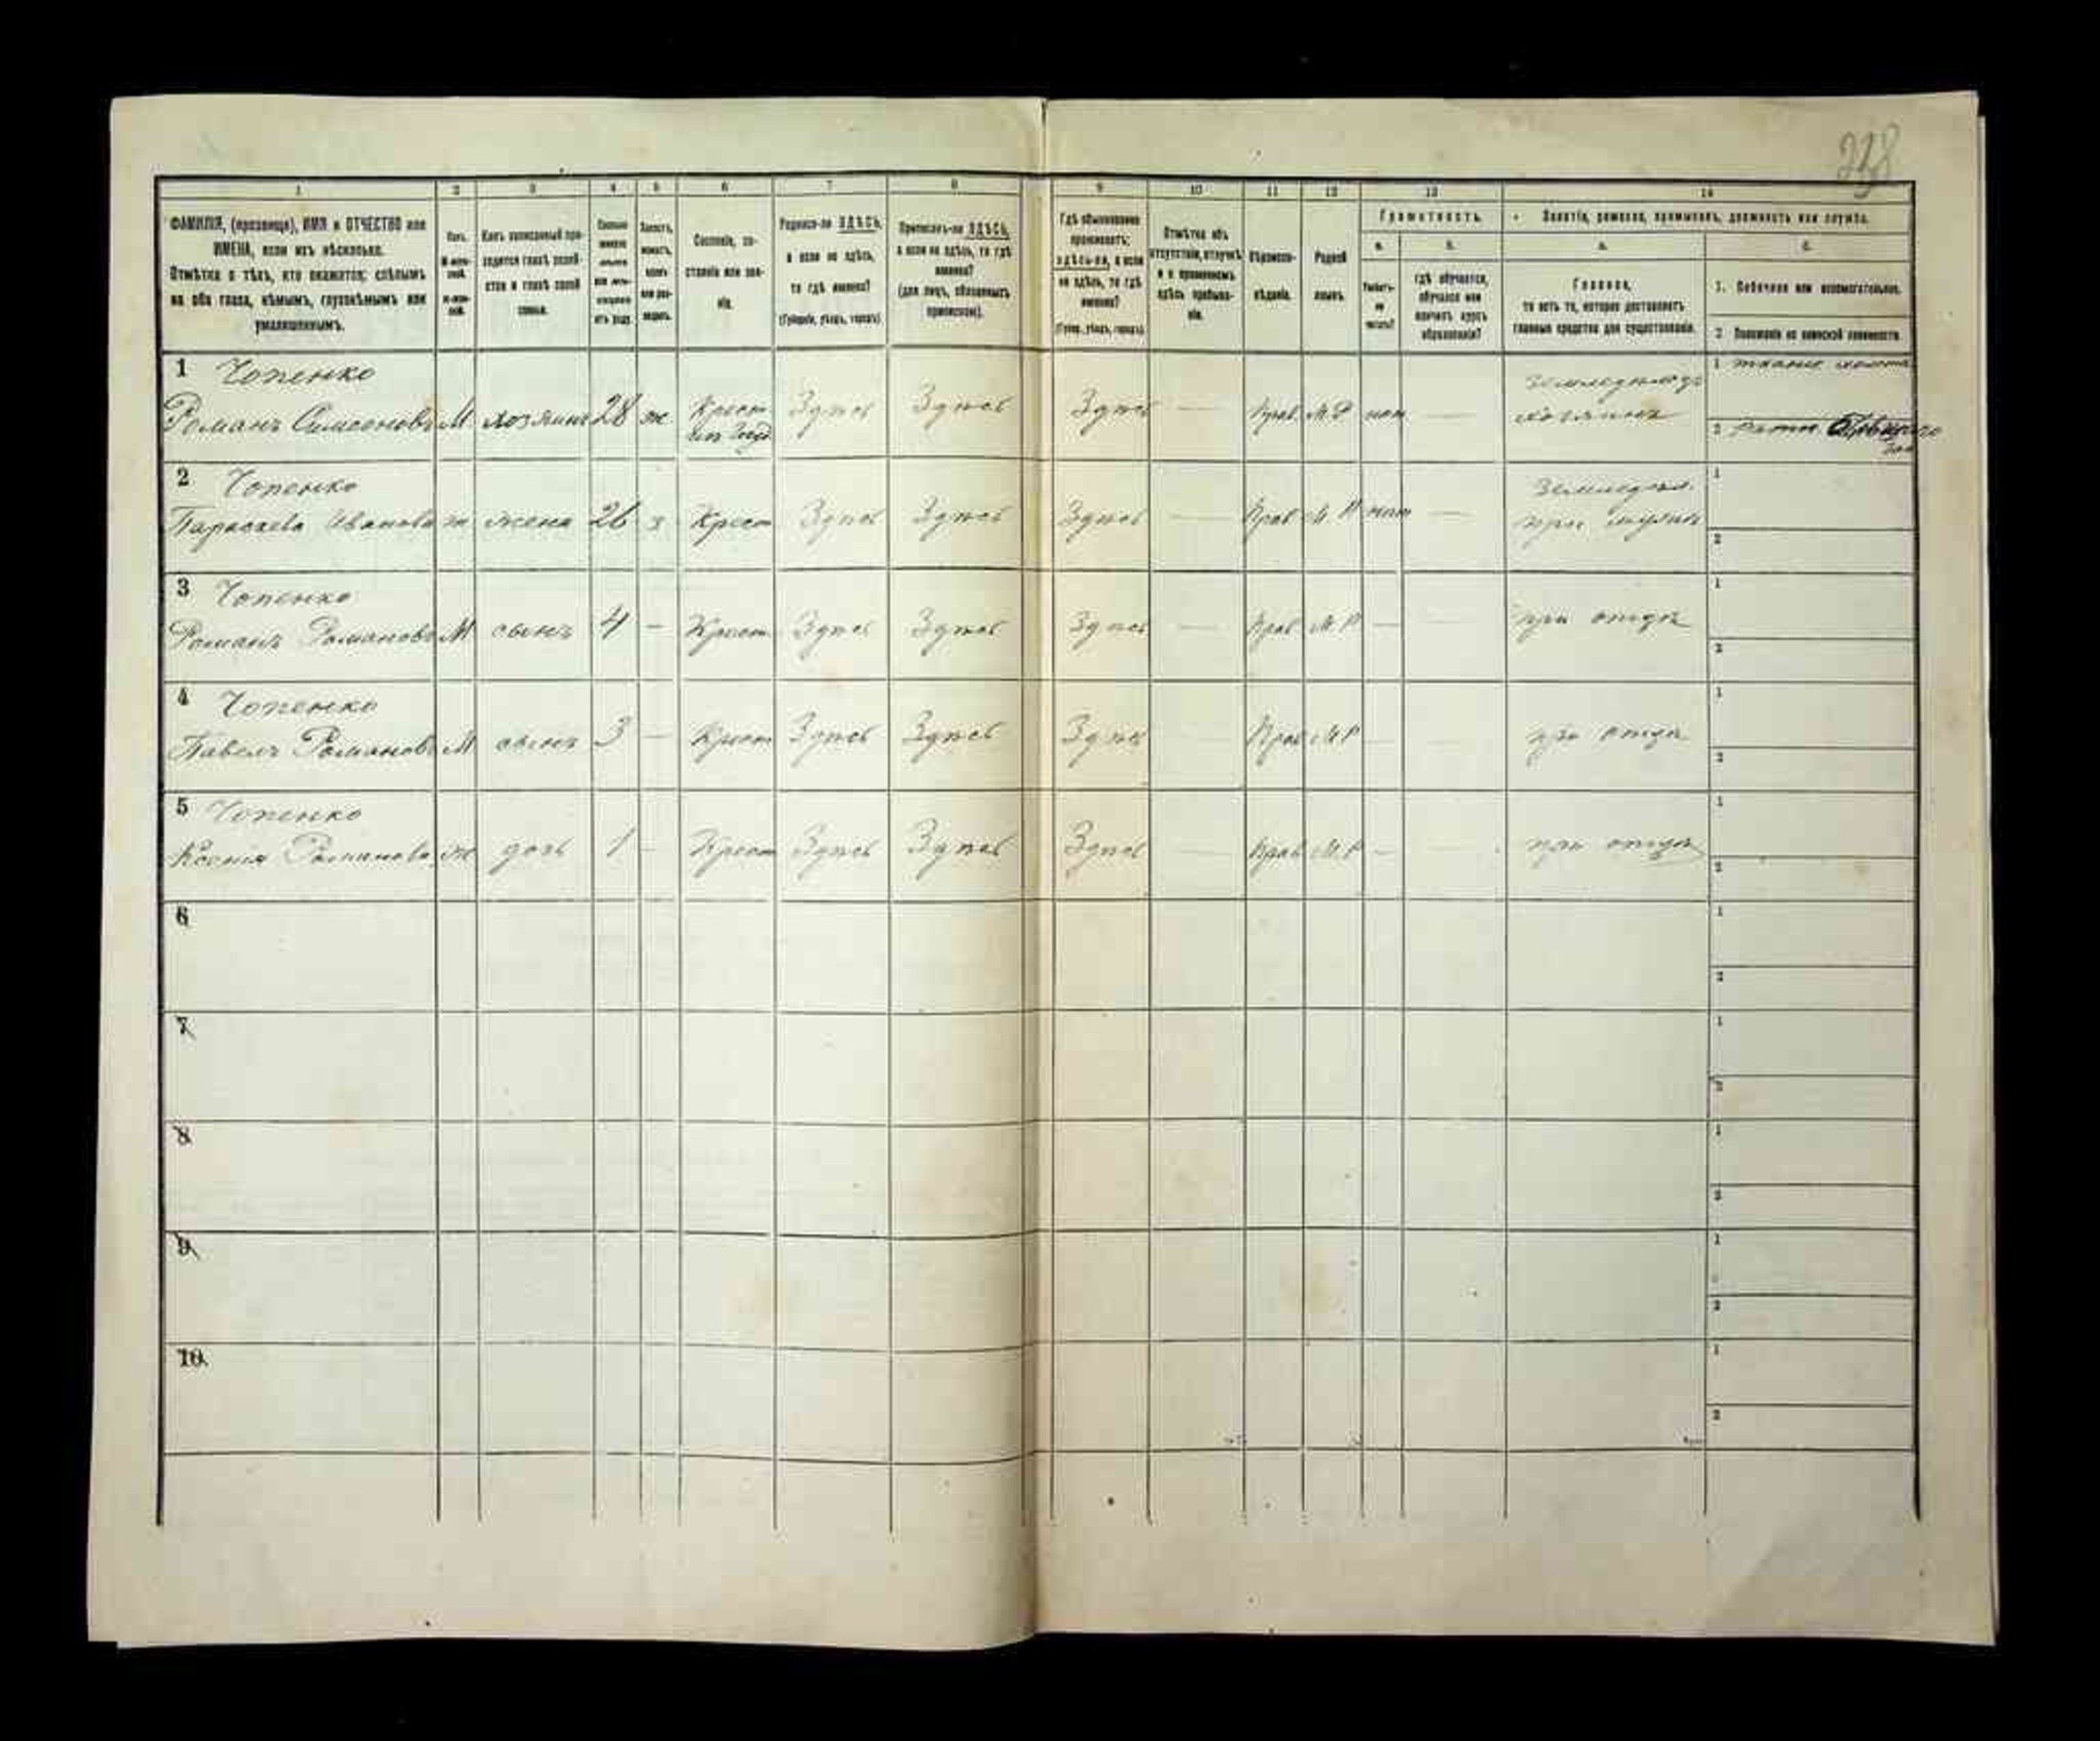 238
1 2 3 4 5 6 7 8 9 10 11 12 13 14
ФАМИЛІЯ, (прозвище), ИМЯ и ОТЧЕСТВО или
ИМЕНА, если ихъ нѣсколько.
Отмѣтка о тѣхъ, кто окажется: слѣпымъ
на оба глаза, нѣмымъ, глухонѣмымъ или
умалишеннымъ.
Полъ.
Какъ записанный при-
ходится главѣ хозяй-
ства и главѣ своей
семьи.
Сколько
минуло
лѣтъ
отъ роду.
Холостъ,
женатъ,
вдовъ
или раз-
веденъ.
Сословіе, со-
стояніе или зва-
ніе.
Родился-ли ЗДѢСЬ,
а если не здѣсь,
то гдѣ именно?
(Губернія, уѣздъ, городъ)
Приписанъ-ли ЗДѢСЬ,
а если не здѣсь, то гдѣ
именно?
(для лицъ, обязанныхъ
припиской).
Гдѣ обыкновенно
проживаетъ:
здѣсь-ли, а если
не здѣсь, то гдѣ
именно?
(Губер., уѣздъ, городъ)
Отмѣтка объ
отсутствіи, отлучкѣ
и о временномъ
здѣсь пребыва-
ніи.
Вѣроиспо-
вѣданіе.
Родной
языкъ.
Грамотность.
а. б.
Умѣетъ-
ли
читать?
гдѣ обучается,
обучался или
кончилъ курсъ
образованія?
Занятіе, ремесло, промыселъ, должность или служба.
а. б.
Главное,
то есть то, которое доставляетъ
главныя средства для существованія.
1. Побочное или вспомогательное.
2. Положеніе по воинской повинности.
1 Чопенко
Романъ Симеоновъ М хозяинъ 28 ж. Крест. Здѣсь Здѣсь Здѣсь — Прав. М.Р нѣт — Земледѣлецъ хозяинъ
1 тканіе холста
2
2 Чопенко
Параскева Иванова ж жена 26 з Крест Здѣсь Здѣсь Здѣсь — Прав М Р нѣт — Земледѣл. при мужѣ
1
2
3 Чопенко
Романъ Романовъ М сынъ 4 — Крест Здѣсь Здѣсь Здѣсь — Прав М.Р — — при отцѣ
1
2
4 Чопенко
Павелъ Романовъ М сынъ 3 — Крест Здѣсь Здѣсь Здѣсь — Прав М.Р — — при отцѣ
1
2
5 Чопенко
Ксенія Романова ж дочь 1 — Крест Здѣсь Здѣсь Здѣсь — Прав М.Р — — при отцѣ
1
2
6
1
2
7
1
2
8
1
2
9
1
2
10.
1
2